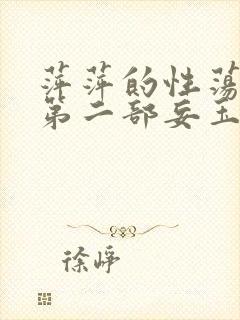 萍萍的性荡
第二部妄玉
徐峥